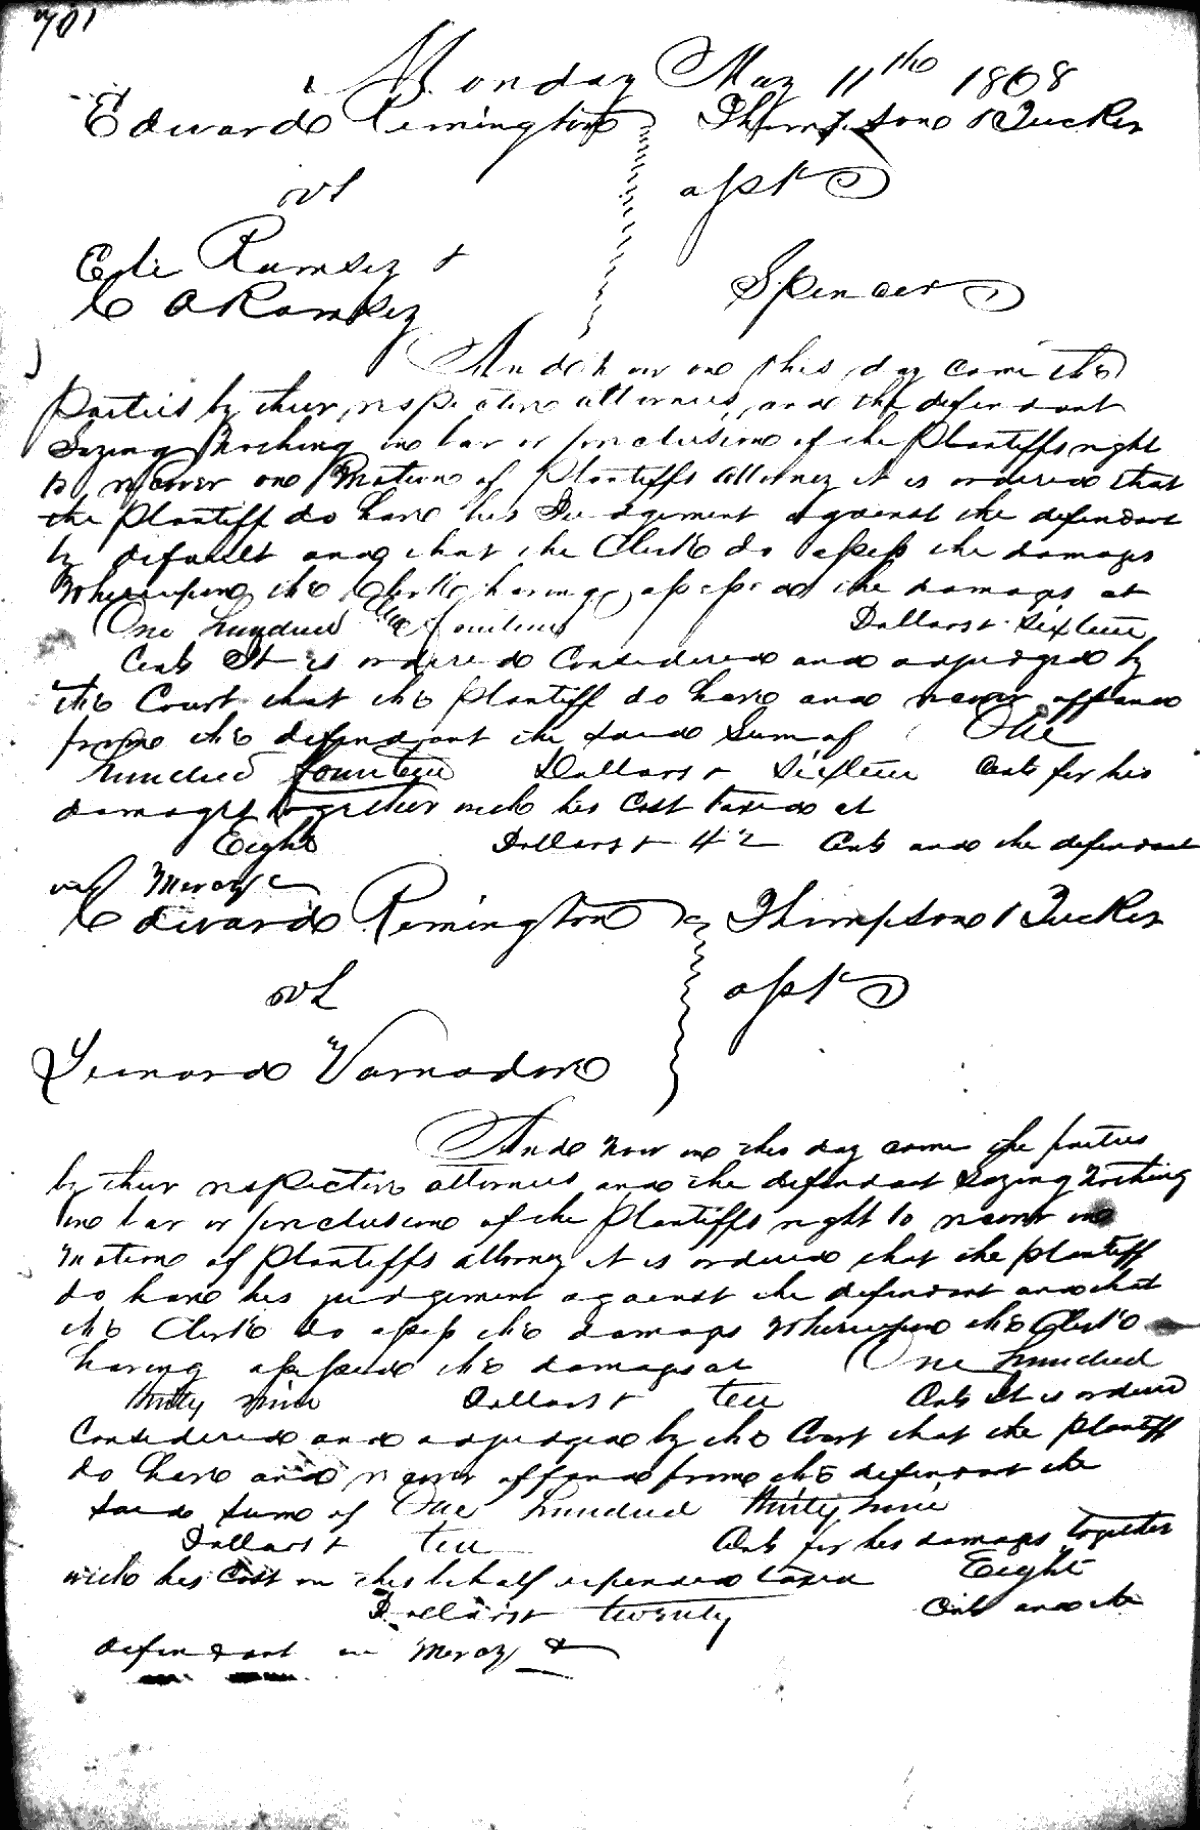 701
Monday May 11th 1868
Edward Remington Thompson & Tucker
vs apt
Ede Ramsey &
C A Ramsey Spencer
And now on this day came the
parties by their respective attornies, and the defendant
Saying Nothing in bar or preclusion of the Plantiffs right
to recover on Motion of Plantiffs attorney it is ordered that
the Plantiff do have his Judgement against the defendant
by default and that the Clerk do assess the damages
Whereupon the Clerk having assessed the damages at
One hundred & fourteen Dollars & Sixteen
Cents It is ordered Considered and adjudged by
the Court that the plantiff do have and recover off and
from the defendant the said Sum of One
hundred fourteen Dollars & Sixteen Cents for his
damages together with his Cost taxed at
Eight Dollars & 42 Cents and the defendant
in Mercy &
Edward Remington Thompson & Tucker
vs apt
Lenard Varnadore
And Now on this day came the parties
by their respective attornies and the defendant Saying Nothing
in bar or preclusion of the Plantiffs right to recover on
motion of Plantiffs attorney it is ordered that the plantiff
do have his judgement against the defendant and that
the Clerk do assess the damages Whereupon the Clerk
having assessed the damages at One hundred
thirty nine Dollars & ten Cents It is ordered
Considered and adjudged by the Court that the plantiff
do have and recover off and from the defendant the
said sum of One hundred thirty nine
Dollars & ten Cents for his damages together
with his Cost in this behalf expended taxed Eight
Dollars & twenty Cents and the
defendant in Mercy &